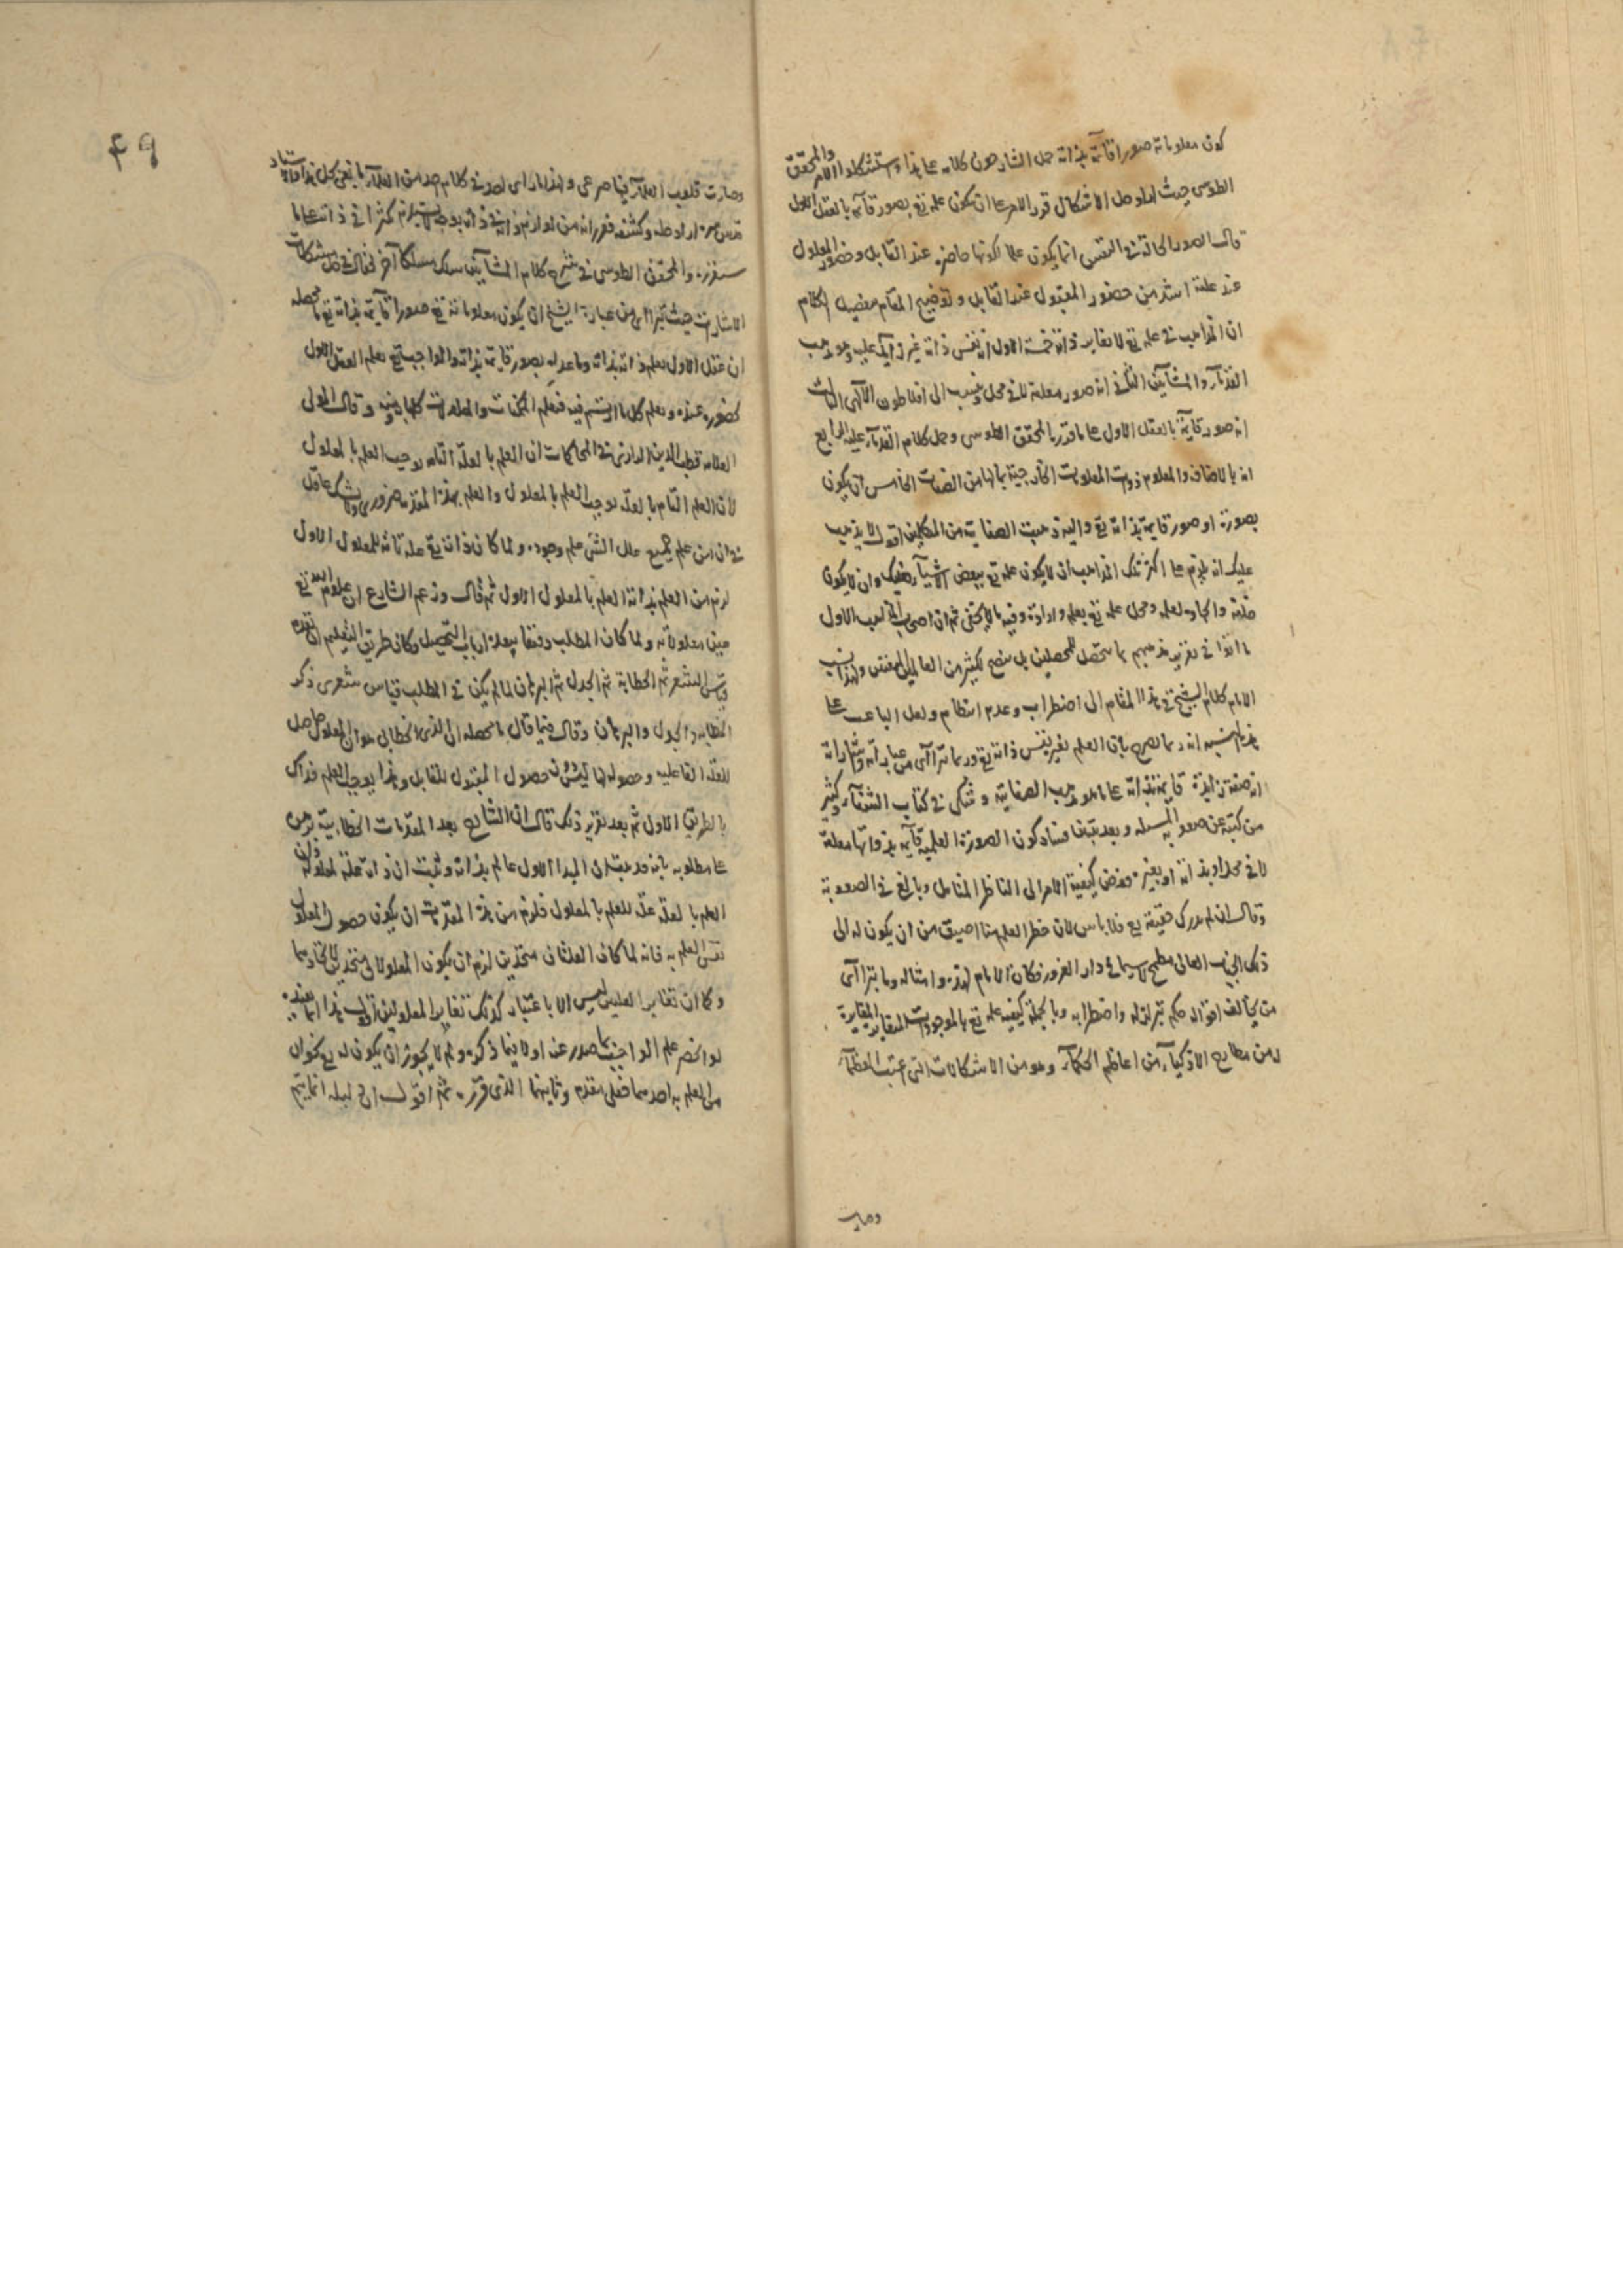 كون معلوماته صورا قائمة بذاته حمل الشارحون كلامه على هذا واستشكلوا الامر والمحقق
الطوسى حيث اراد حل الاشكال قرر الامر على ان يكون علمه تع بصور قائمة بالعقل الاول
قال الصور الحالة فى النفس انما يكون علما لكونها حاضرة عند القابل وحضور المعلول
عند علته اشد من حضور المقبول عند القابل و توضيح المقام تفصيل الكلام
ان المذاهب فى علمه تع لا تغاير ذاته خمسة الاول انه نفس ذاته غير زايد عليه وهو مذهب
القدمآء والمشآئين الثانى انه صور معلقة لا فى محل وينسب الى افلاطون الآلهى الثالث
انه صور قائمة بالعقل الاول على ما قرره المحقق الطوسى وحمل كلام القدمآء عليه الرابع
انه بالاضافة والمعلوم ذوات المعلومات الخارجية بما لها من الصفات الخامس ان يكون
بصورة او صور قايمة بذاته تع واليه ذهبت الصفاتية من المتكلمين اقول لا يذهب
عليك انه يلزم على اكثر تلك المذاهب ان لا يكون علمه تع ببعض الاشيآء وان لا يكون
خلقه وايجاده لعلمه وجعل علمه تع بعلم وارادة وفيه ما لا يخفى ثم ان اصحاب المذهب الاول
ما اتوا فى تقرير مذهبهم بما يتحصل للمحصلين بل متضح لكثير من العالمين المتقنين ولهذا نسب
الامام كلام الشيخ فى هذا المقام الى اضطراب وعدم انتظام ولعل الباعث على
انه ربما يصرح بان العلم بغير نفس ذاته تع وربما يترآاى من عباراته واشاراته
انه صفة زايدة قايمة بذاته على ما هو مذهب الصفاتية وشكى فى كتاب الشفآء وكثير
من كتبه عن صعوبة المسئله وبعد تبين فساد كون الصورة العلمية قآيمة بذواتها معلقة
لا فى محل او بذاته او بغيره فوض كيفية الامر الى الناظر المتامل وبالغ فى الصعوبة
وقال ان لم يدرك حقيقته تع فلا باس لان حظر العلم منا اضيق من ان يكون له الى
ذلك الجناب العالى مطمح لاسيما فى دار الغرور فكان الامام لهذه وامثاله وما يترا آى
من تخالف اقواله حكم بتزلزله واضطرابه وبالجملة كيفيه علمه تع بالموجودات المتغايره
لمن مطارح الاذكيآء من اعاظم الحكمآء وهو من الاشكالات التى اعيت العظمآء
وصارت
٤٩
وصارت قلوب العلمآء فيها صرعى و لهذا ما راى لصوت كلام احد من العلمآء ما يفى بحل هذا وافاد الاستاد
قدس سره اراد حله وكشفه فقرر انه من لوازم ذاته فى ذاته بوجه لا يستلزم كثرة فى ذاته على ما
سنقرره والمحقق الطوسى فى شرح كلام المشآئين سلك مسلكا آخر فقال فى حل مشكلات
الاشارات حيث يترا آى من عبارة الشيخ ان يكون معلوماته تع صورا قآيمة بذاته تع ما محصله
ان عقل الاول يعلم ذاته بذاته وما عداه بصور قايمة بذاته والواجب تع يعلم العقل الاول
بحضوره عنده ويعلم كل ما ارتسم فيه فيعلم الجزئيات والمعلومات كلها وقال المولى
العلامه قطب الدين الرازى فى المحاكمات ان العلم بالعلة التامه يوجب العلم بالمعلول
لان العلم التام بالعلة يوجب العلم بالمعلول والعلم بهذه المقدمة ضرورى ولا يشك عاقل
فى ان من علم جميع علل الشئ علم وجوده ولما كان ذاته تع علة تامه للمعلول الاول
لزم من العلم بذاته العلم بالمعلول الاول ثم قال وزعم الشارح ان علوم الله تع
عين معلولاته ولما كان المطلب دقيقا ارباب التحصيل وكان طريق التعليم ان يقدم
قياس الشعر ثم الخطابة ثم الجدل ثم البرهان لما لم يكن فى المطلب قياس شعرى ذكر
الخطابه والجدل والبرهان وقال فيما قال ما محصله ان الذى الخطابى هو ان المعلول حاصل
للعلة الفاعليه وحصوله لها ليس حصول المقبول للقابل وهذا يوجب العلم فذاك
بالطريق الاول ثم بعد تقرير ذلك قال ان الشارح بعد المقدمات الخطابية برهن
على مطلوبه بانه قد ثبت ان المبدا الاول عالم بذاته وثبت ان ذاته علة لمعلوله وان
العلم بالعلة علة للعلم بالمعلول فلزم من هذه المقدمات ان يكون حصول المعلول
نفس العلم به فانه لما كان العلتان متحدتين لزم ان يكون المعلولان متحدين لاتحادهما
وكما ان تغاير العلتين ليس الا باعتبار كذلك تغاير المعلولين اقول هذا انما يفيد
لو انحصر علم الواجب بما صدر عنه اولا فيما ذكره ولم لا يجوز ان يكون له تع نحوان
من العلم به احدهما فعلى مقدم وثانيهما الذى قرره ثم اقول ان دليله انما يتم